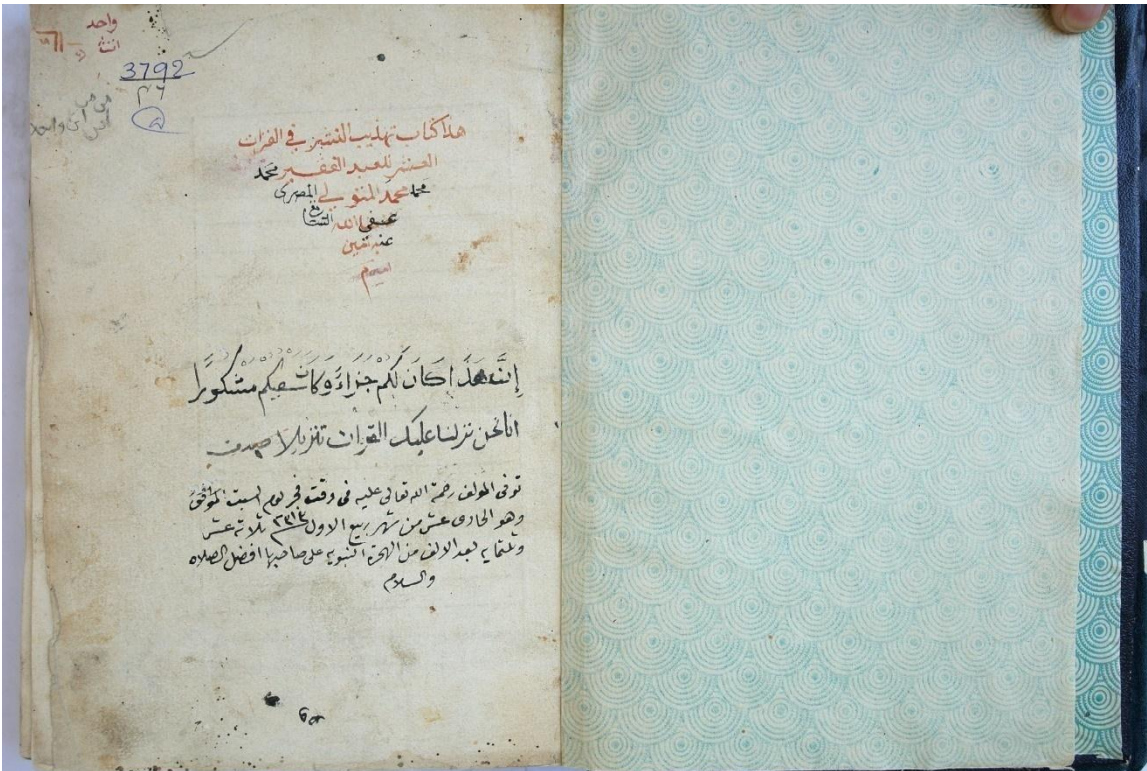 واحد
3792
٣٦
هذا كتاب تهذيب النشر في القرات
العشر للعبد الفقير محمد
محمد المتولي المصري
عفى الله الشافعي
عنه
امين
إن هذا كان لكم جزاءً وكان سعيكم مشكورا
انا نحن نزلنا عليك القران تنزيلا صدق
توفى المولف رحمة الله تعالى عليه فى وقت فجر يوم السبت الموافق
وهو الحادى عشر من شهر ربيع الاول ١٣١٣ ثلاثة عشر
وثلثمايه بعد الالف من الهجرة النبويه على صاحبها افضل الصلاه
والسلام